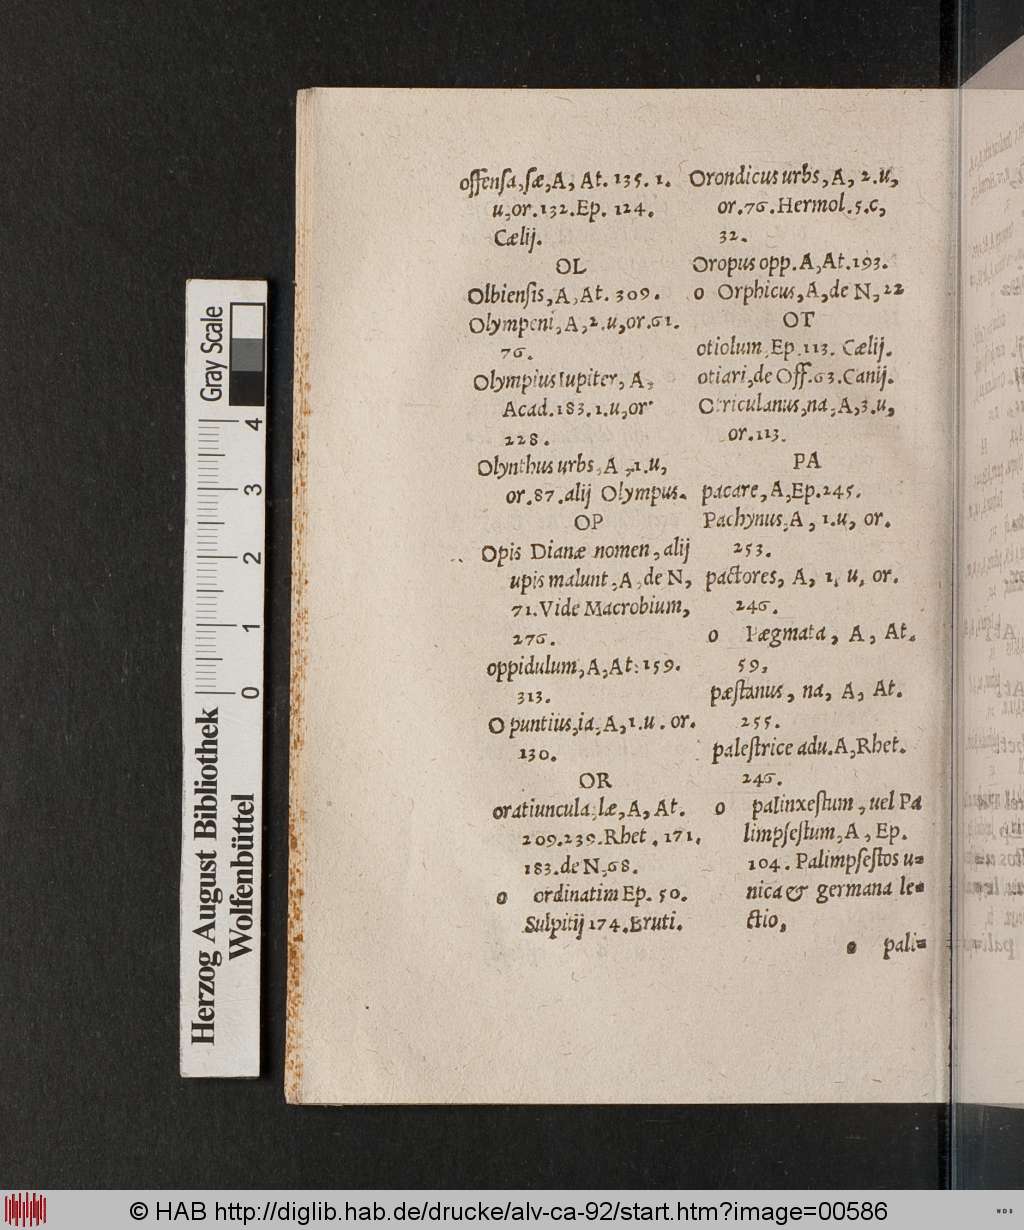 offensa, sæ, A, At. 135. 1.
u, or. 132. Ep. 124.
Cælij.
OL
Olbiensis, A, At. 309.
Olympeni, A, 2. u, or. 61.
76.
Olympius Iupiter, A,
Acad. 183. 1. u, or
228.
Olynthus urbs, A, 1. u,
or. 87. alij Olympus.
OP
Opis Dianæ nomen, alij
upis malunt, A, de N,
71. Vide Macrobium,
276.
oppidulum, A, At: 159.
313.
Opuntius, ia, A, 1. u. or.
130.
OR
oratiuncula, læ, A, At.
209. 239. Rhet. 171.
183. de N, 68.
o ordinatim Ep. 50.
Sulpitij 174. Bruti.
Orondicus urbs, A, 2. u,
or. 76. Hermol. 5. c,
32.
Oropus opp. A, At. 193.
o Orphicus, A, de N, 22
OT
otiolum, Ep. 113. Cælij.
otiari, de Off. 63. Canij.
Otriculanus, na, A, 3. u,
or. 113.
PA
pacare, A, Ep. 245.
Pachynus, A, 1. u, or.
253.
pactores, A, 1, u, or.
246.
o Pægmata, A, At.
59,
pæstanus, na, A, At.
255.
palestrice adu. A, Rhet.
246.
o palinxestum, uel Pa
limpsestum, A, Ep.
104. Palimpsestos u=
nica & germana le=
ctio,
o pali=
Gray Scale
4 3 2 1 0
Herzog August Bibliothek
Wolfenbüttel
© HAB http://diglib.hab.de/drucke/alv-ca-92/start.htm?image=00586